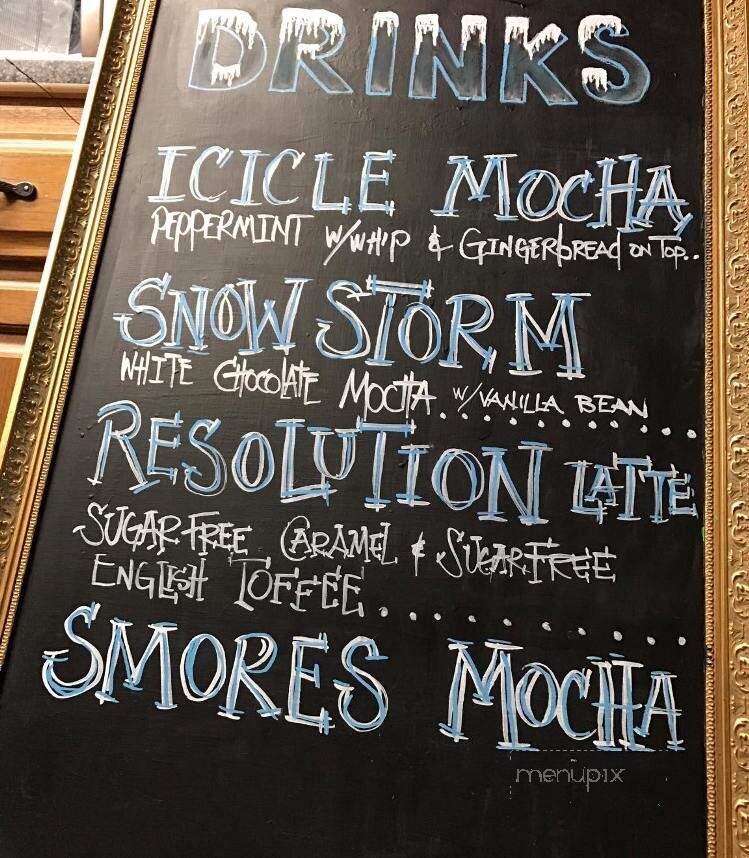 DRINKS
ICICLE MOCHA,
PEPPERMINT W/WHIP & GINGERBREAD ON TOP..
SNOW STORM
WHITE CHOCOLATE MOCHA. W/VANILLA BEAN..........
RESOLUTION LATTE
SUGAR FREE CARAMEL & SUGAR FREE
ENGLISH TOFFEE..........
SMORES MOCHA
menupix